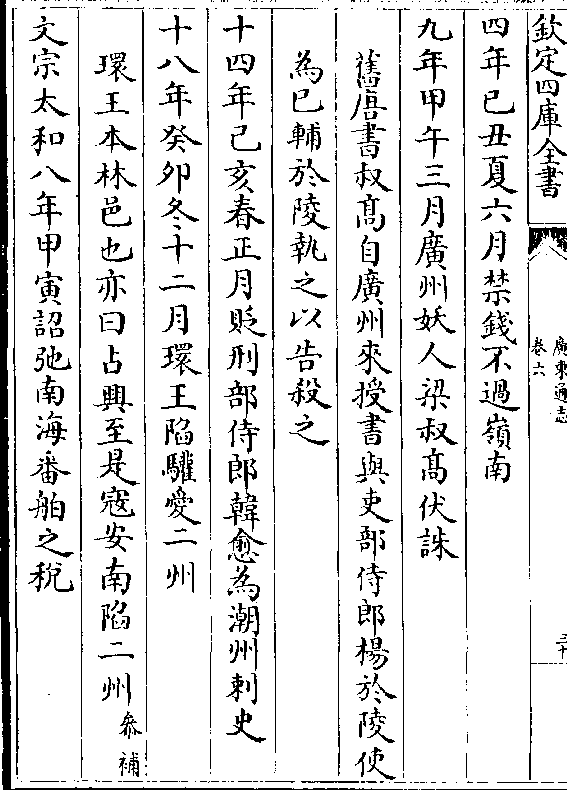 欽定四庫全書
廣東通志
卷六
三十
四年已丑夏六月禁錢不過嶺南
九年甲午三月廣州妖人梁叔髙伏誅
舊唐書叔髙自廣州來授書與吏部侍郎楊於陵使
為已輔於陵執之以告殺之
十四年己亥春正月貶刑部侍郎韓愈為潮州刺史
十八年癸卯冬十二月環王陷驩愛二州
環王本林邑也亦曰占興至是寇安南陷二州參補
文宗太和八年甲寅詔弛南海番舶之稅